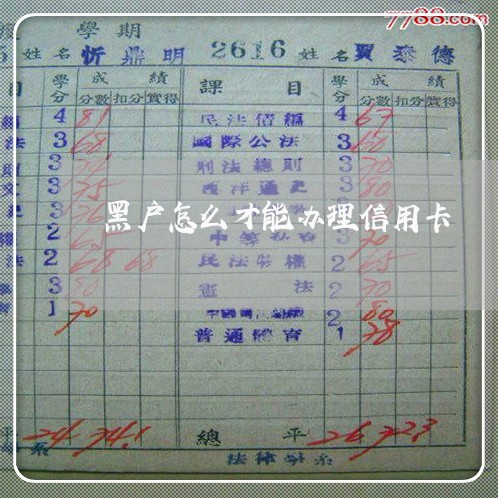 7788.com
學期
姓名 忻鼎明 2616 姓名 賈泰德
目 學分 成績 課目 學分 成績
分數 扣分 實得 分數 扣分 實得
4 81 民法債編 4 67
法 3 68 國際公法 3 60
3 刑法總則 3 70
3 75 西洋通史 3 80
黑户怎么才能办理信用卡
2 3 70
法 2 68 68 民法物權 2 65
3 80 憲法 2 70
1 70 2 80
普通體育 1 78
平 24 74.1 總平 26 72.3
系 法律學系